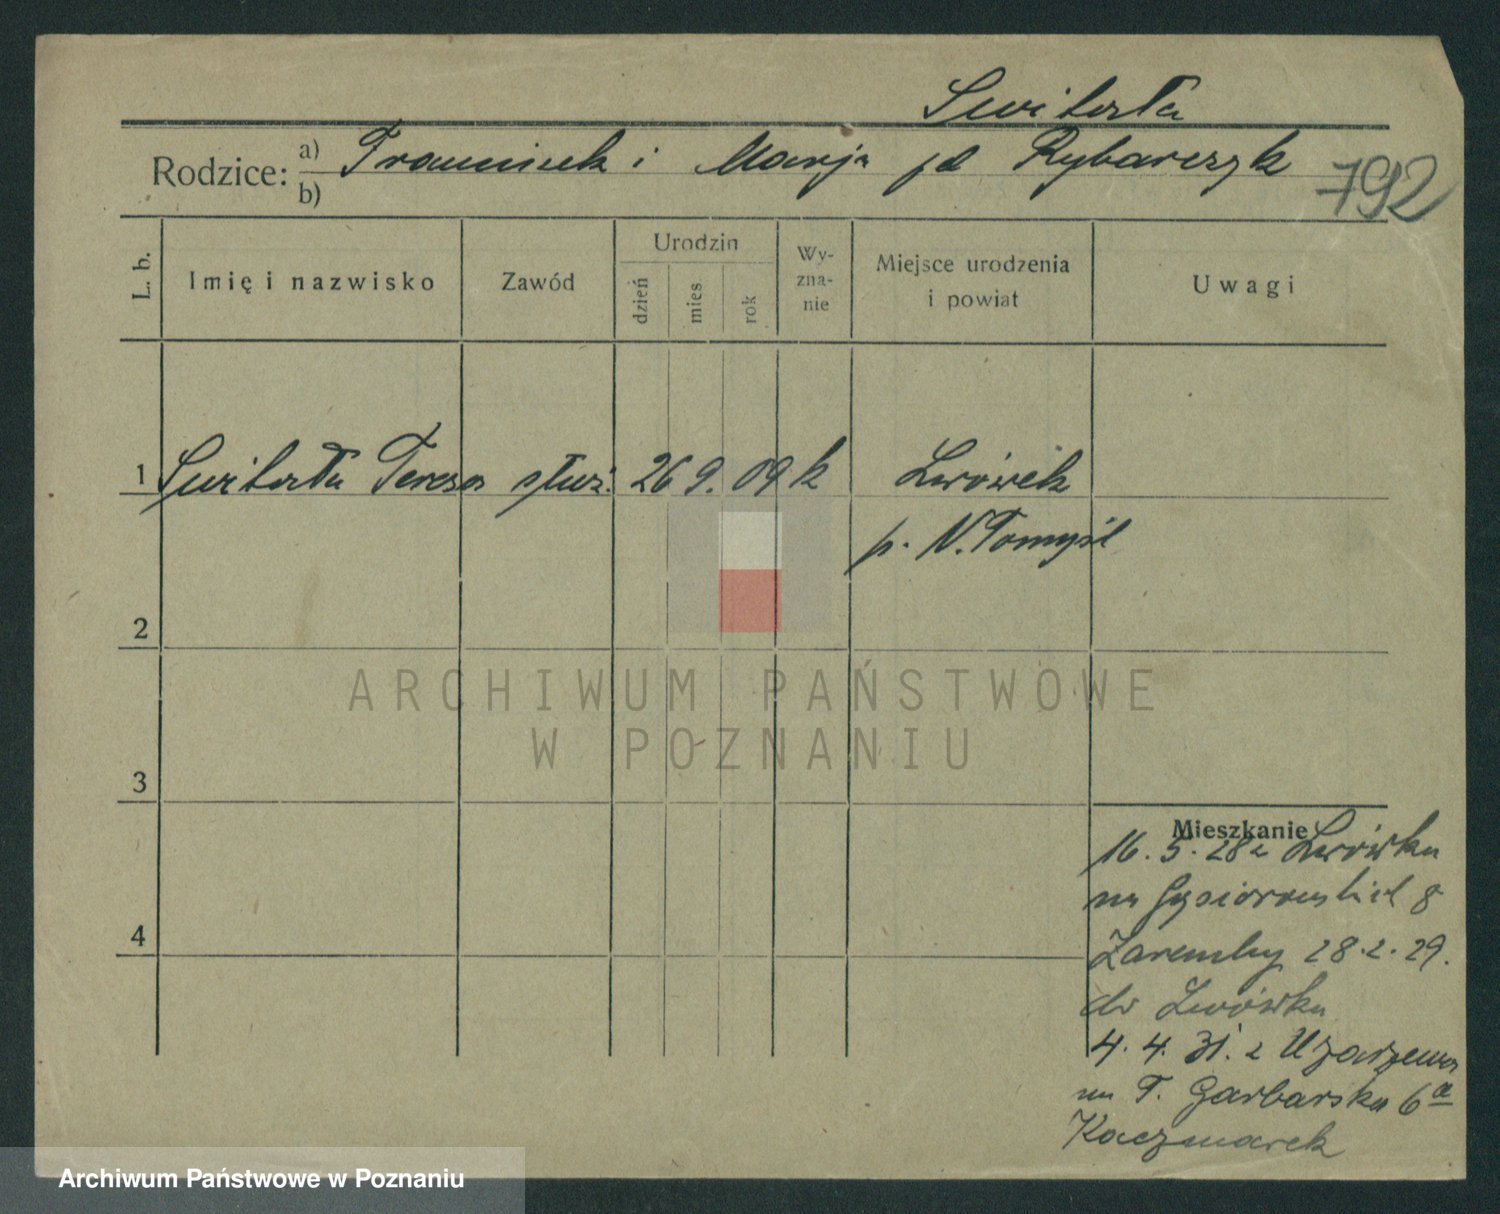 Switała
Rodzice: a) Franciszek i Marja pd Rybarczyk
b)
792
L. b. Imię i nazwisko Zawód Urodzin dzień mies. rok Wy-zna-nie Miejsce urodzenia i powiat Uwagi
1 Switała Teresa służ. 26 9. 09 k Lwówek
p. N. Tomyśl
2
ARCHIWUM PAŃSTWOWE
W POZNANIU
3
Mieszkanie
16. 5. 28 z Lwówka
na Gąsiorowskich 8
Zaremby 28. 2. 29.
do Lwówka
4
4. 4. 31. z Uzarzewa
na T. Garbarska 6a
Kaczmarek
Archiwum Państwowe w Poznaniu